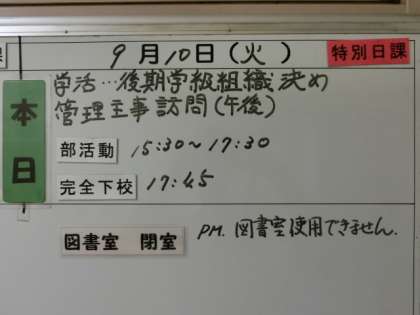 9月10日(火) 特別日課
本日
学活…後期学級組織決め
管理主事訪問(午後)
部活動 15:30~17:30
完全下校 17:45
図書室 閉室 PM. 図書室使用できません.